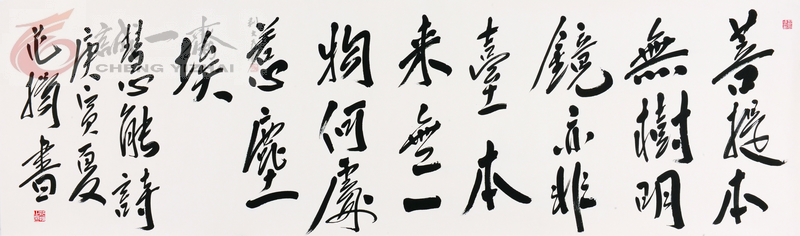 菩提本
無樹明
鏡亦非
臺本
来無一
物何處
惹塵
埃
慧能詩
庚寅夏
范揚書
誠一齋
CHENG YI ZHAI